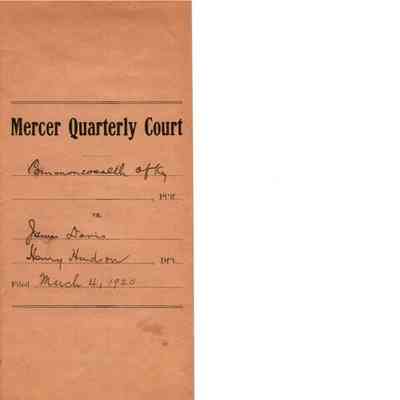 Mercer Quarterly Court
Commonwealth of Ky
Pl'ff
vs.
James Davis
Harry Hudson Df't.
Filed March 4, 1920